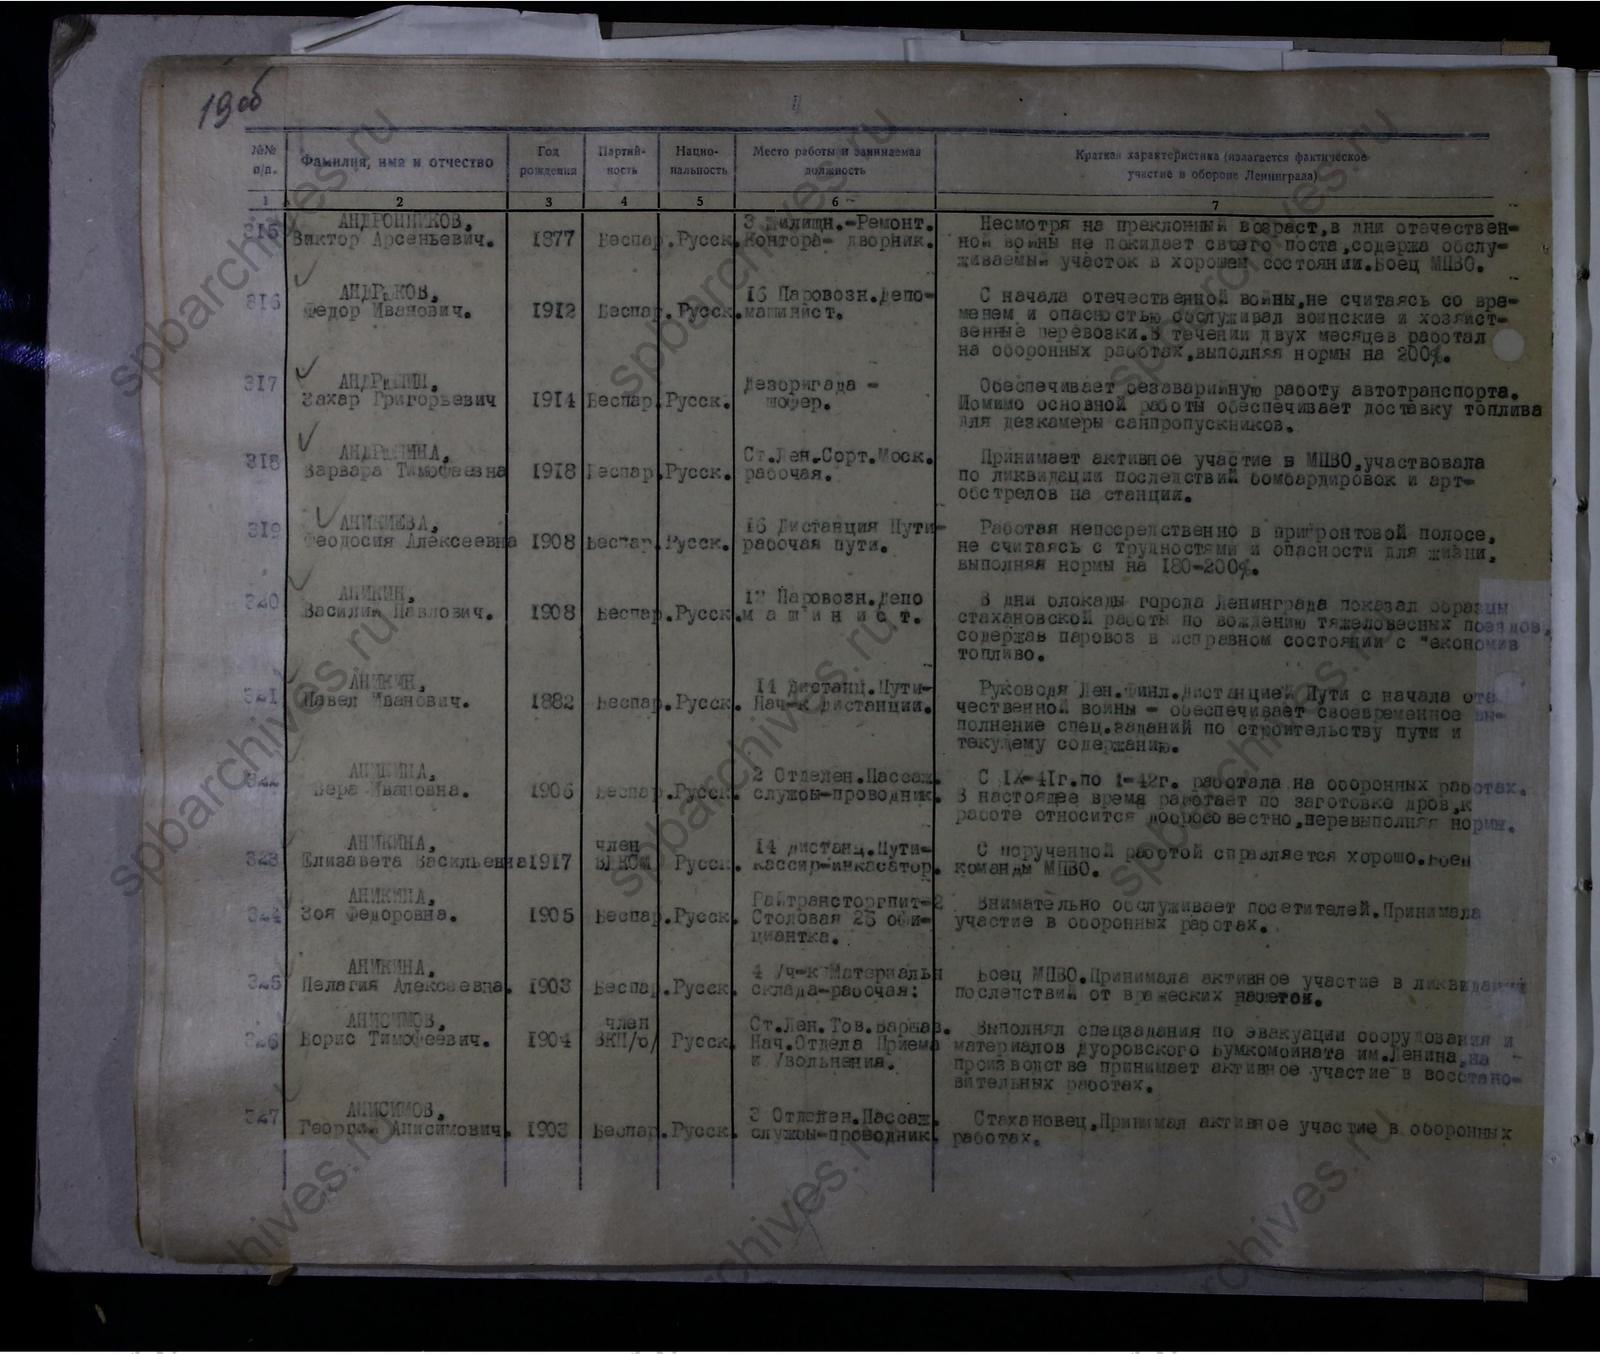 19об
№№ п/п.
Фамилия, имя и отчество
Год рождения
Партий-ность
Нацио-нальность
Место работы и занимаемая должность
Краткая характеристика (излагается фактическое участие в обороне Ленинграда)
1 2 3 4 5 6 7
315 АНДРОННИКОВ, 3 Жилищн.-Ремонт. Несмотря на преклонный возраст,в дни отечествен-
Виктор Арсеньевич. 1877 Беспар.Русск. Контора- дворник. ной войны не покидает своего поста,содержа обслу-
живаемый участок в хорошем состоянии.Боец МПВО.
316 16 Паровозн.Депо- С начала отечественной войны,не считаясь со вре-
Федор Иванович. 1912 Беспар.Русск. машинист. менем и опасностью обслуживал воинские и хозяйст-
венные перевозки.В течении двух месяцев работал
на оборонных работах,выполняя нормы на 200%.
317 Дезбригада - Обеспечивает безаварийную работу автотранспорта.
Захар Григорьевич 1914 Беспар.Русск. шофер. Помимо основной работы обеспечивает доставку топлива
для дезкамеры санпропускников.
318 Ст.Лен.Сорт.Моск. Принимает активное участие в МПВО,участвовала
Варвара Тимофеевна 1918 Беспар.Русск. рабочая. по ликвидации последствий бомбардировок и арт-
обстрелов на станции.
319 АНИКИЕВА, 16 Дистанция Пути- Работая непосредственно в прифронтовой полосе,
Феодосия Алексеевна 1908 Беспар.Русск. рабочая пути. не считаясь с трудностями и опасности для жизни,
выполняя нормы на 180-200%.
320 АНИКИН, Паровозн.Депо В дни блокады города Ленинграда показал образцы
Василий Павлович. 1908 Беспар.Русск. м а ш и н и с т. стахановской работы по вождению тяжеловесных поездов,
содержав паровоз в исправном состоянии с "економив
топливо.
321 АНИКИН, 14 Дистанц.Пути- Руководя Лен.Финл.Дистанцией Пути с начала оте-
Павел Иванович. 1882 Беспар.Русск. Нач-к дистанции. чественной войны - обеспечивает своевременное вы-
полнение спец.заданий по строительству пути и
текущему содержанию.
322 АНИКИНА, 2 Отделен.Пассаж. С IX-41г.по 1-42г. работала на оборонных работах.
Вера Ивановна. Беспар.Русск. службы-проводник. В настоящее время работает по заготовке дров,к
работе относится добросовестно,перевыполняя нормы.
323 АНИКИНА, член 14 дистанц.Пути- С порученной работой справляется хорошо.Боец
Елизавета Васильевна 1917 ВЛКСМ Русск. кассир-инкасатор. команды МПВО.
324 АНИКИНА, Райтрансторгпит-2 Внимательно обслуживает посетителей.Принимала
Зоя Федоровна. 1905 Беспар.Русск. Столовая 23 офи- участие в оборонных работах.
циантка.
325 АНИКИНА, 4 Уч-к Материальн Боец МПВО.Принимала активное участие в ликвидации
Пелагия Алексеевна. 1903 Беспар.Русск. склада-рабочая: последствий от вражеских налетов.
326 АНИСИМОВ, член Ст.Лен.Тов.Варшав. Выполнял спецзадания по эвакуации оборудования и
Борис Тимофеевич. 1904 ВКП/б/ Русск. Нач.Отдела Приема материалов Дубровского Бумкомбината им.Ленина,на
и Увольнения. производстве принимает активное участие в восстано-
вительных работах.
327 АНИСИМОВ, 3 Отделен.Пассаж. Стахановец.Принимал активное участие в оборонных
Георгий Анисимович. 1903 Беспар.Русск. службы-проводник. работах.
spbarchives.ru